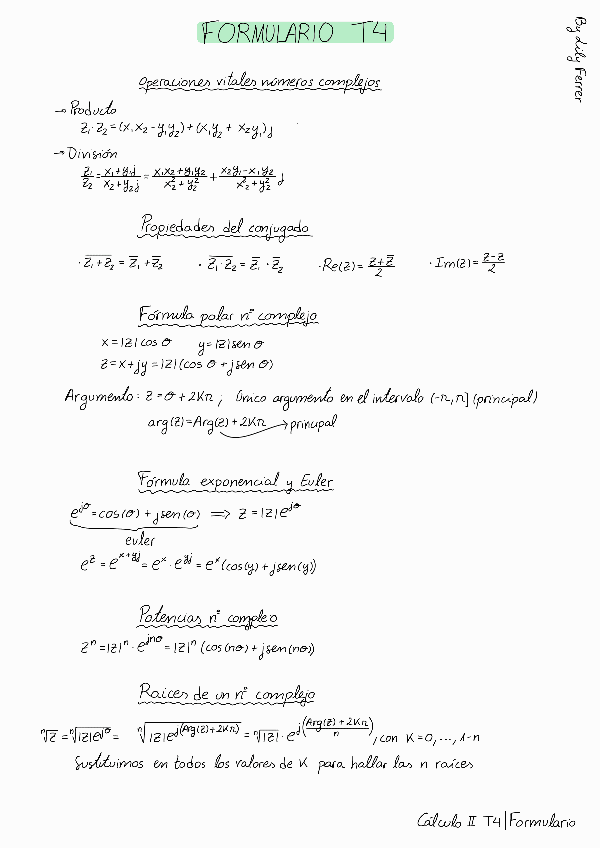 FORMULARIO T4
By Lily Ferrer
Operaciones vitales números complejos
→ Producto
z₁·z₂=(x₁x₂-y₁y₂)+(x₁y₂+x₂y₁)j
→ División
z₁/z₂ = (x₁+y₁j)/(x₂+y₂j) = (x₁x₂+y₁y₂)/(x₂²+y₂²) + (x₂y₁-x₁y₂)/(x₂²+y₂²) j
Propiedades del conjugado
· \overline{z₁+z₂} = z̄₁+z̄₂ · \overline{z₁·z₂} = z̄₁·z̄₂ · Re(z)=(z+z̄)/2 · Im(z)=(z-z̄)/2
Fórmula polar nº complejo
x=|z|cos θ y=|z|sen θ
z=x+jy=|z|(cos θ+jsen θ)
Argumento: z=θ+2Kπ; Único argumento en el intervalo (-π,π] (principal)
arg(z)=Arg(z)+2Kπ → principal
Fórmula exponencial y Euler
e^{jθ}=cos(θ)+jsen(θ) ⟹ z=|z|e^{jθ}
euler
e^z=e^{x+yj}=e^x·e^{yj}=e^x(cos(y)+jsen(y))
Potencias nº compleo
z^n=|z|^n·e^{jnθ}=|z|^n(cos(nθ)+jsen(nθ))
Raíces de un nº complejo
ⁿ√z=ⁿ√(|z|e^{jθ})=ⁿ√(|z|e^{j(Arg(z)+2Kπ)})=ⁿ√|z|·e^{j((Arg(z)+2Kπ)/n)}, con K=0,...,1-n
Sustituimos en todos los valores de K para hallar las n raíces
Cálculo II T4|Formulario